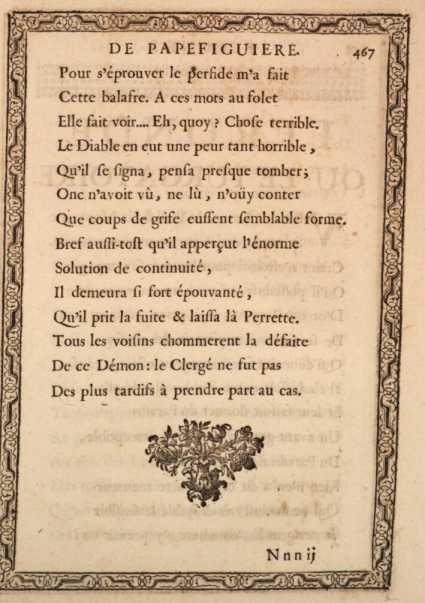 DE PAPEFIGUIERE. 467
Pour s'éprouver le perfide m'a fait
Cette balafre. A ces mots au folet
Elle fait voir.... Eh, quoy? Chose terrible.
Le Diable en eut une peur tant horrible,
Qu'il se signa, pensa presque tomber;
Onc n'avoit vû, ne lû, n'oüy conter
Que coups de grife eussent semblable forme.
Bref aussi-tost qu'il apperçut l'énorme
Solution de continuité,
Il demeura si fort épouvanté,
Qu'il prit la fuite & laissa là Perrette.
Tous les voisins chommerent la défaite
De ce Démon: le Clergé ne fut pas
Des plus tardifs à prendre part au cas.
Nnn ij